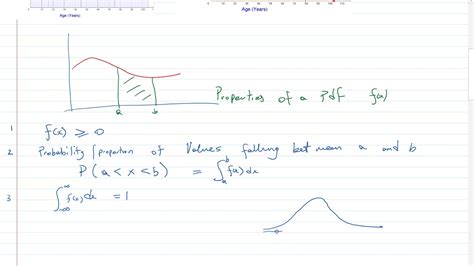 Age (Years)
Age (Years)
a b
Properties of a Pdf f(x)
1 f(x) ⩾ 0
2 Probability / proportion of Values falling between a and b
P(a < x < b) = ∫_a^b f(x) dx
3 ∫_{-∞}^{∞} f(x) dx = 1